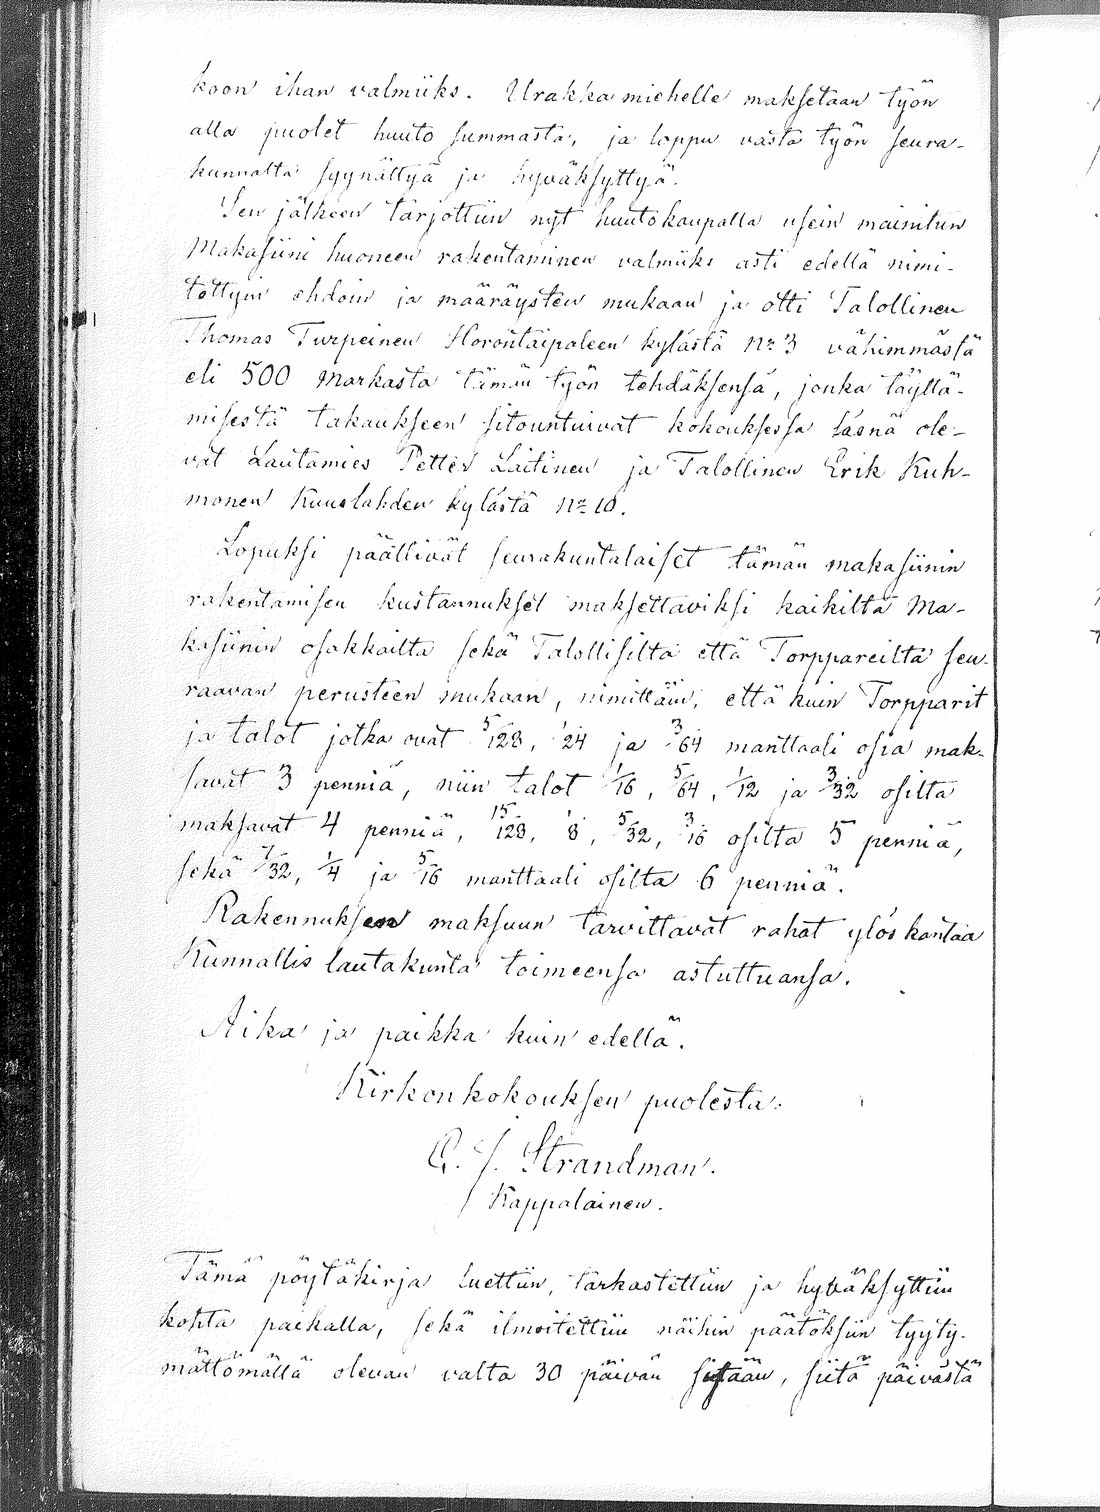 koon ihan valmiiks. Urakka miehelle maksetaan työn
alla puolet huuto summasta, ja loppu vasta työn seura-
kunnalta syynättyä ja hyväksyttyä.
Sen jälkeen tarjottiin nyt huutokaupalla usein mainitun
Makasiini huoneen rakentaminen valmiiks asti edellä nimi-
tettyin ehdoin ja määräysten mukaan ja otti Talollinen
Thomas Turpeinen Horontaipaleen kylästä No 3 vähimmästä
eli 500 Markasta tämän työn tehdäksensä, jonka täyttä-
misestä takaukseen sitountuivat kokouksessa läsnä ole-
vat Lautamies Petter Laitinen ja Talollinen Erik Kuh-
monen Kuuslahden kylästä No 10.
Lopuksi päättivät seurakuntalaiset tämän makasiinin
rakentamisen kustannukset maksettaviksi kaikilta Ma-
kasiinin osakkailta sekä Talollisilta että Torppareilta seu-
raavan perusteen mukaan, nimittäin, että kuin Torpparit
ja talot jotka ovat 5/128, 1/24 ja 3/64 manttaali osia mak-
savat 3 penniä, niin talot 1/16, 5/64, 1/12 ja 3/32 osilta
maksavat 4 penniä, 15/128, 1/8, 5/32, 3/16 osilta 5 penniä,
sekä 7/32, 1/4 ja 5/16 manttaali osilta 6 penniä.
Rakennuksen maksuun tarvittavat rahat ylös kantaa
Kunnallis lautakunta toimeensa astuttuansa.
Aika ja paikka kuin edellä.
Kirkonkokouksen puolesta:
G. J. Strandman.
Kappalainen.
Tämä pöytäkirja luettiin, tarkastettiin ja hyväksyttiin
kohta paikalla, sekä ilmoitettiin näihin päätöksiin tyyty-
mättömällä olevan valta 30 päivän sisään, siitä päivästä